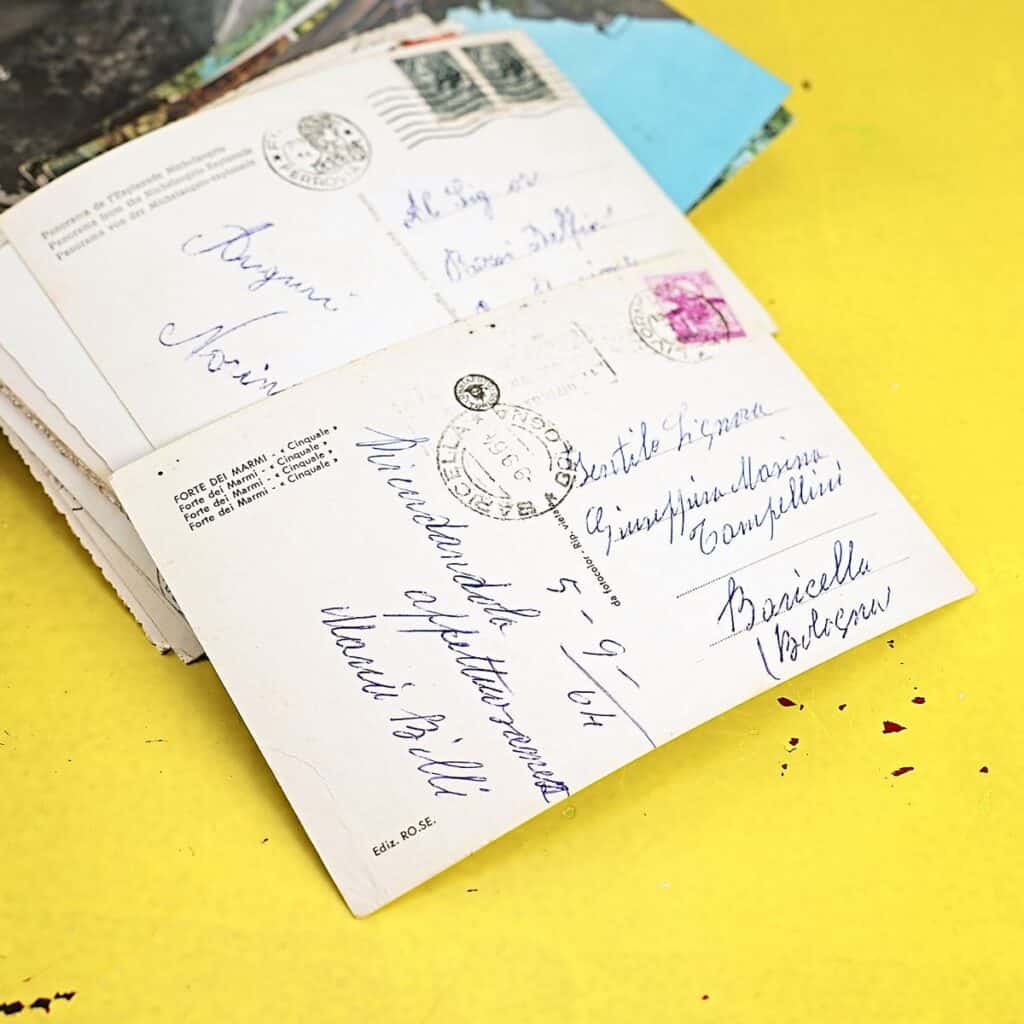 Panorama de l'Esplanade Michelangelo
Panorama from the Michelangelo Esplanade
Panorama von der Michelangelo-esplanade
FERROVIA
Auguri
Al Sig
FORTE DEI MARMI - « Cinquale »
Forte dei Marmi - « Cinquale »
Forte dei Marmi - « Cinquale »
Forte dei Marmi - « Cinquale »
BARICELLA * BOLOGNA *
9 9 64
Ricordandola
affettuosamente
Maria Billi
5-9-
64
da fotocolor - Rip. vietata
Gentile Signora
Giuseppina Marina
Tampellini
Baricella
(Bologna
Ediz. RO.SE.